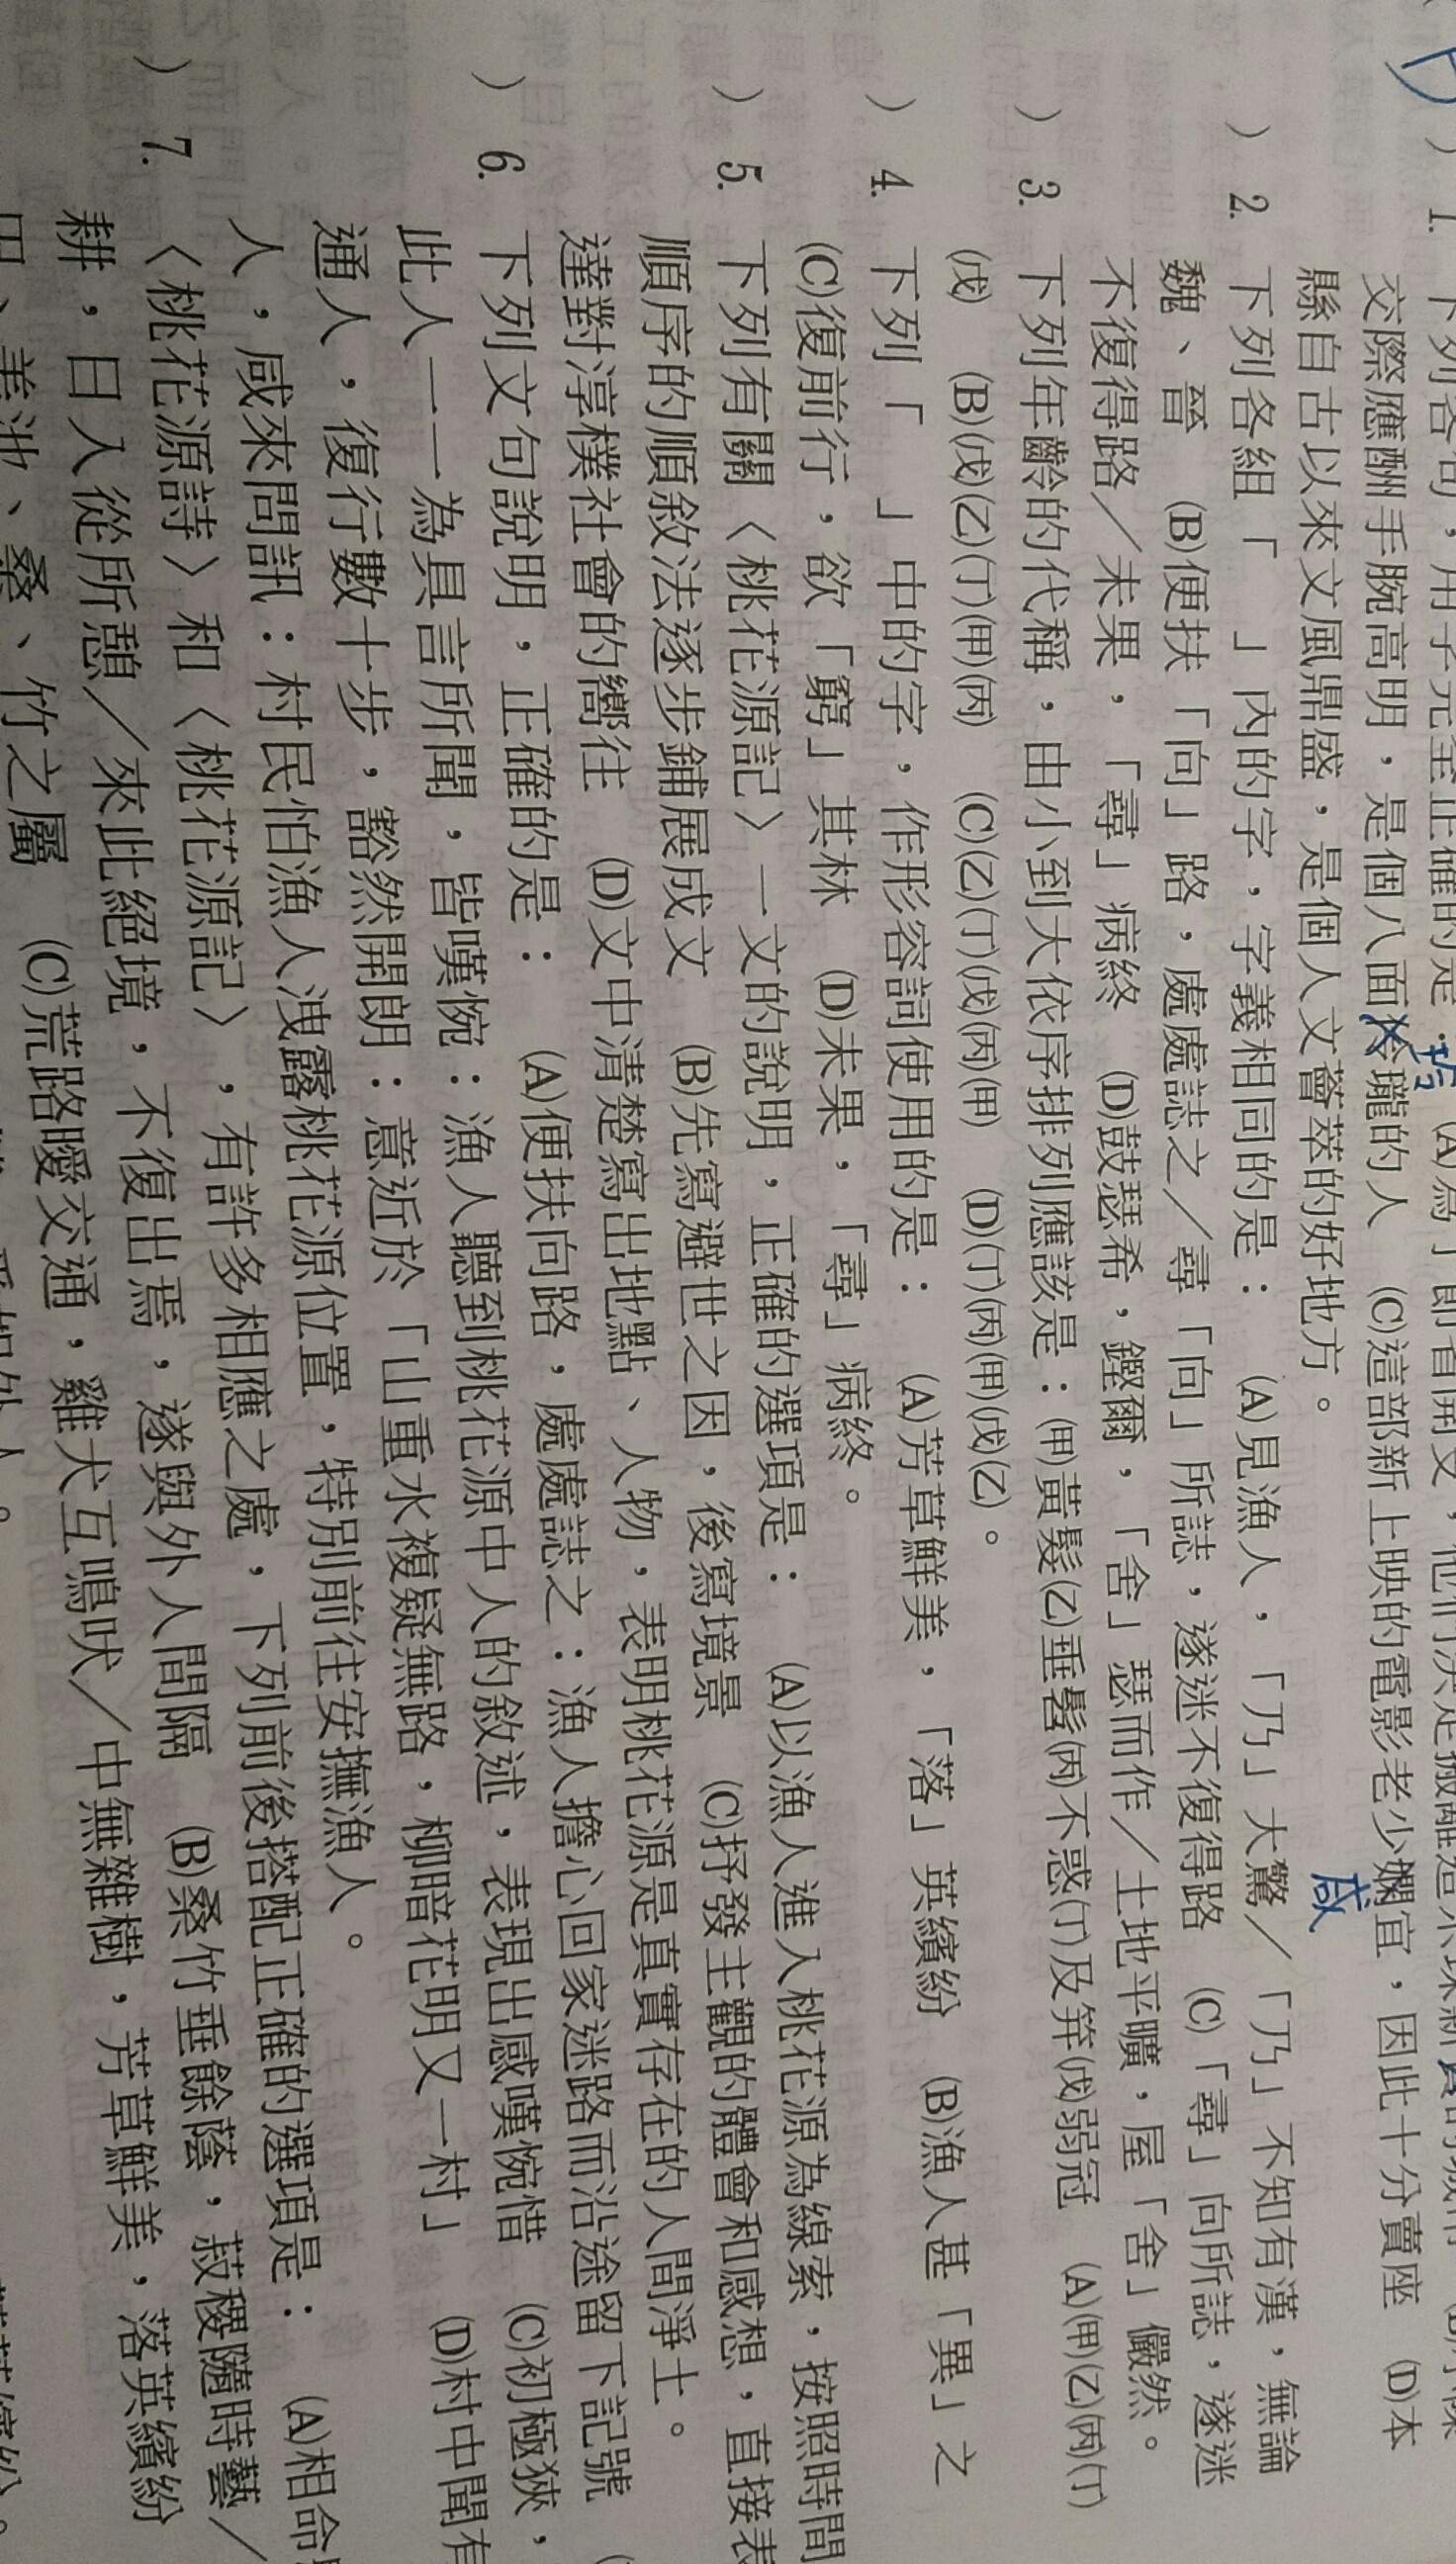 ) 1. 下列各句,用字完全正確的是:
交際應酬手腕高明,是個八面伶瓏的人 (C)這部新上映的電影老少嫻宜,因此十分賣座 (D)本
玲
咸
縣自古以來文風鼎盛,是個人文薈萃的好地方。
) 2. 下列各組「 」內的字,字義相同的是: (A)見漁人,「乃」大驚/「乃」不知有漢,無論
魏、晉 (B)便扶「向」路,處處誌之/尋「向」所誌,遂迷不復得路 (C)「尋」向所誌,遂迷
不復得路/未果,「尋」病終 (D)鼓瑟希,鏗爾,「舍」瑟而作/土地平曠,屋「舍」儼然。
) 3. 下列年齡的代稱,由小到大依序排列應該是:(甲)黃髮(乙)垂髫(丙)不惑(丁)及笄(戊)弱冠 (A)(甲)(乙)(丙)(丁)
(戊) (B)(戊)(乙)(丁)(甲)(丙) (C)(乙)(丁)(戊)(丙)(甲) (D)(丁)(丙)(甲)(戊)(乙)。
) 4. 下列「 」中的字,作形容詞使用的是: (A)芳草鮮美,「落」英繽紛 (B)漁人甚「異」之
(C)復前行,欲「窮」其林 (D)未果,「尋」病終。
) 5. 下列有關〈桃花源記〉一文的說明,正確的選項是: (A)以漁人進入桃花源為線索,按照時間
順序的順敘法逐步鋪展成文 (B)先寫避世之因,後寫境景 (C)抒發主觀的體會和感想,直接表
達對淳樸社會的嚮往 (D)文中清楚寫出地點、人物,表明桃花源是真實存在的人間淨土。
) 6. 下列文句說明,正確的是: (A)便扶向路,處處誌之:漁人擔心回家迷路而沿途留下記號
此人一一為具言所聞,皆嘆惋:漁人聽到桃花源中人的敘述,表現出感嘆惋惜 (C)初極狹,
通人,復行數十步,豁然開朗:意近於「山重水複疑無路,柳暗花明又一村」 (D)村中聞有
人,咸來問訊:村民怕漁人洩露桃花源位置,特別前往安撫漁人。
) 7. 〈桃花源詩〉和〈桃花源記〉,有許多相應之處,下列前後搭配正確的選項是: (A)相命
耕,日入從所憩/來此絕境,不復出焉,遂與外人間隔 (B)桑竹垂餘蔭,菽稷隨時藝/
田、美池、桑、竹之屬 (C)荒路曖交通,雞犬互鳴吠/中無雜樹,芳草鮮美,落英繽紛